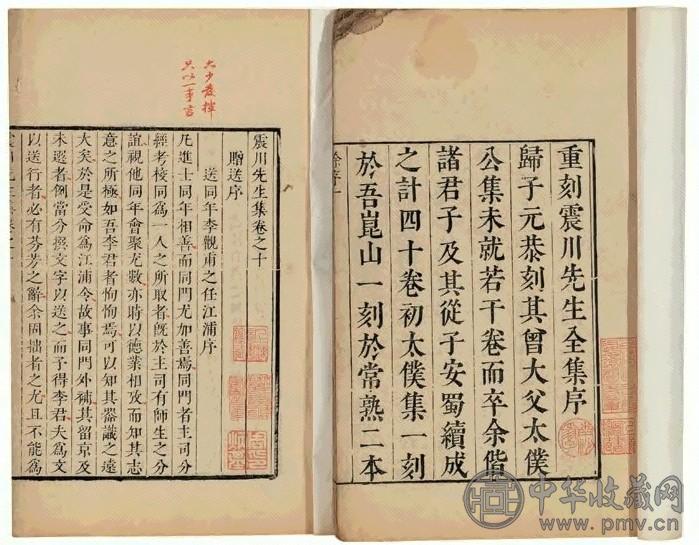 重刻震川先生全集序
歸子元恭刻其曾大父太僕
公集未就若干卷而卒余偕
諸君子及其從子安蜀續成
之計四十卷初太僕集一刻
於吾崑山一刻於常熟二本
太少發揮
只以一事言
震川先生集卷之十
贈送序
送同年李觀甫之任江浦序
凡進士同年相善而同門尤加善焉同門者主司分
經考校同爲一人之所取者旣於主司有師生之分
誼視他同年會聚尤數亦時以德業相攻而知其志
意之所極如吾李君者恂恂焉可以知其器識之遠
大矣於是受命爲江浦令故事同門外補其留京及
未選者例當分撰文字以送之而予得李君夫爲文
以送行者必有芬芳之辭余固拙者之尤且不能爲
中华收藏网
www.pmv.cn